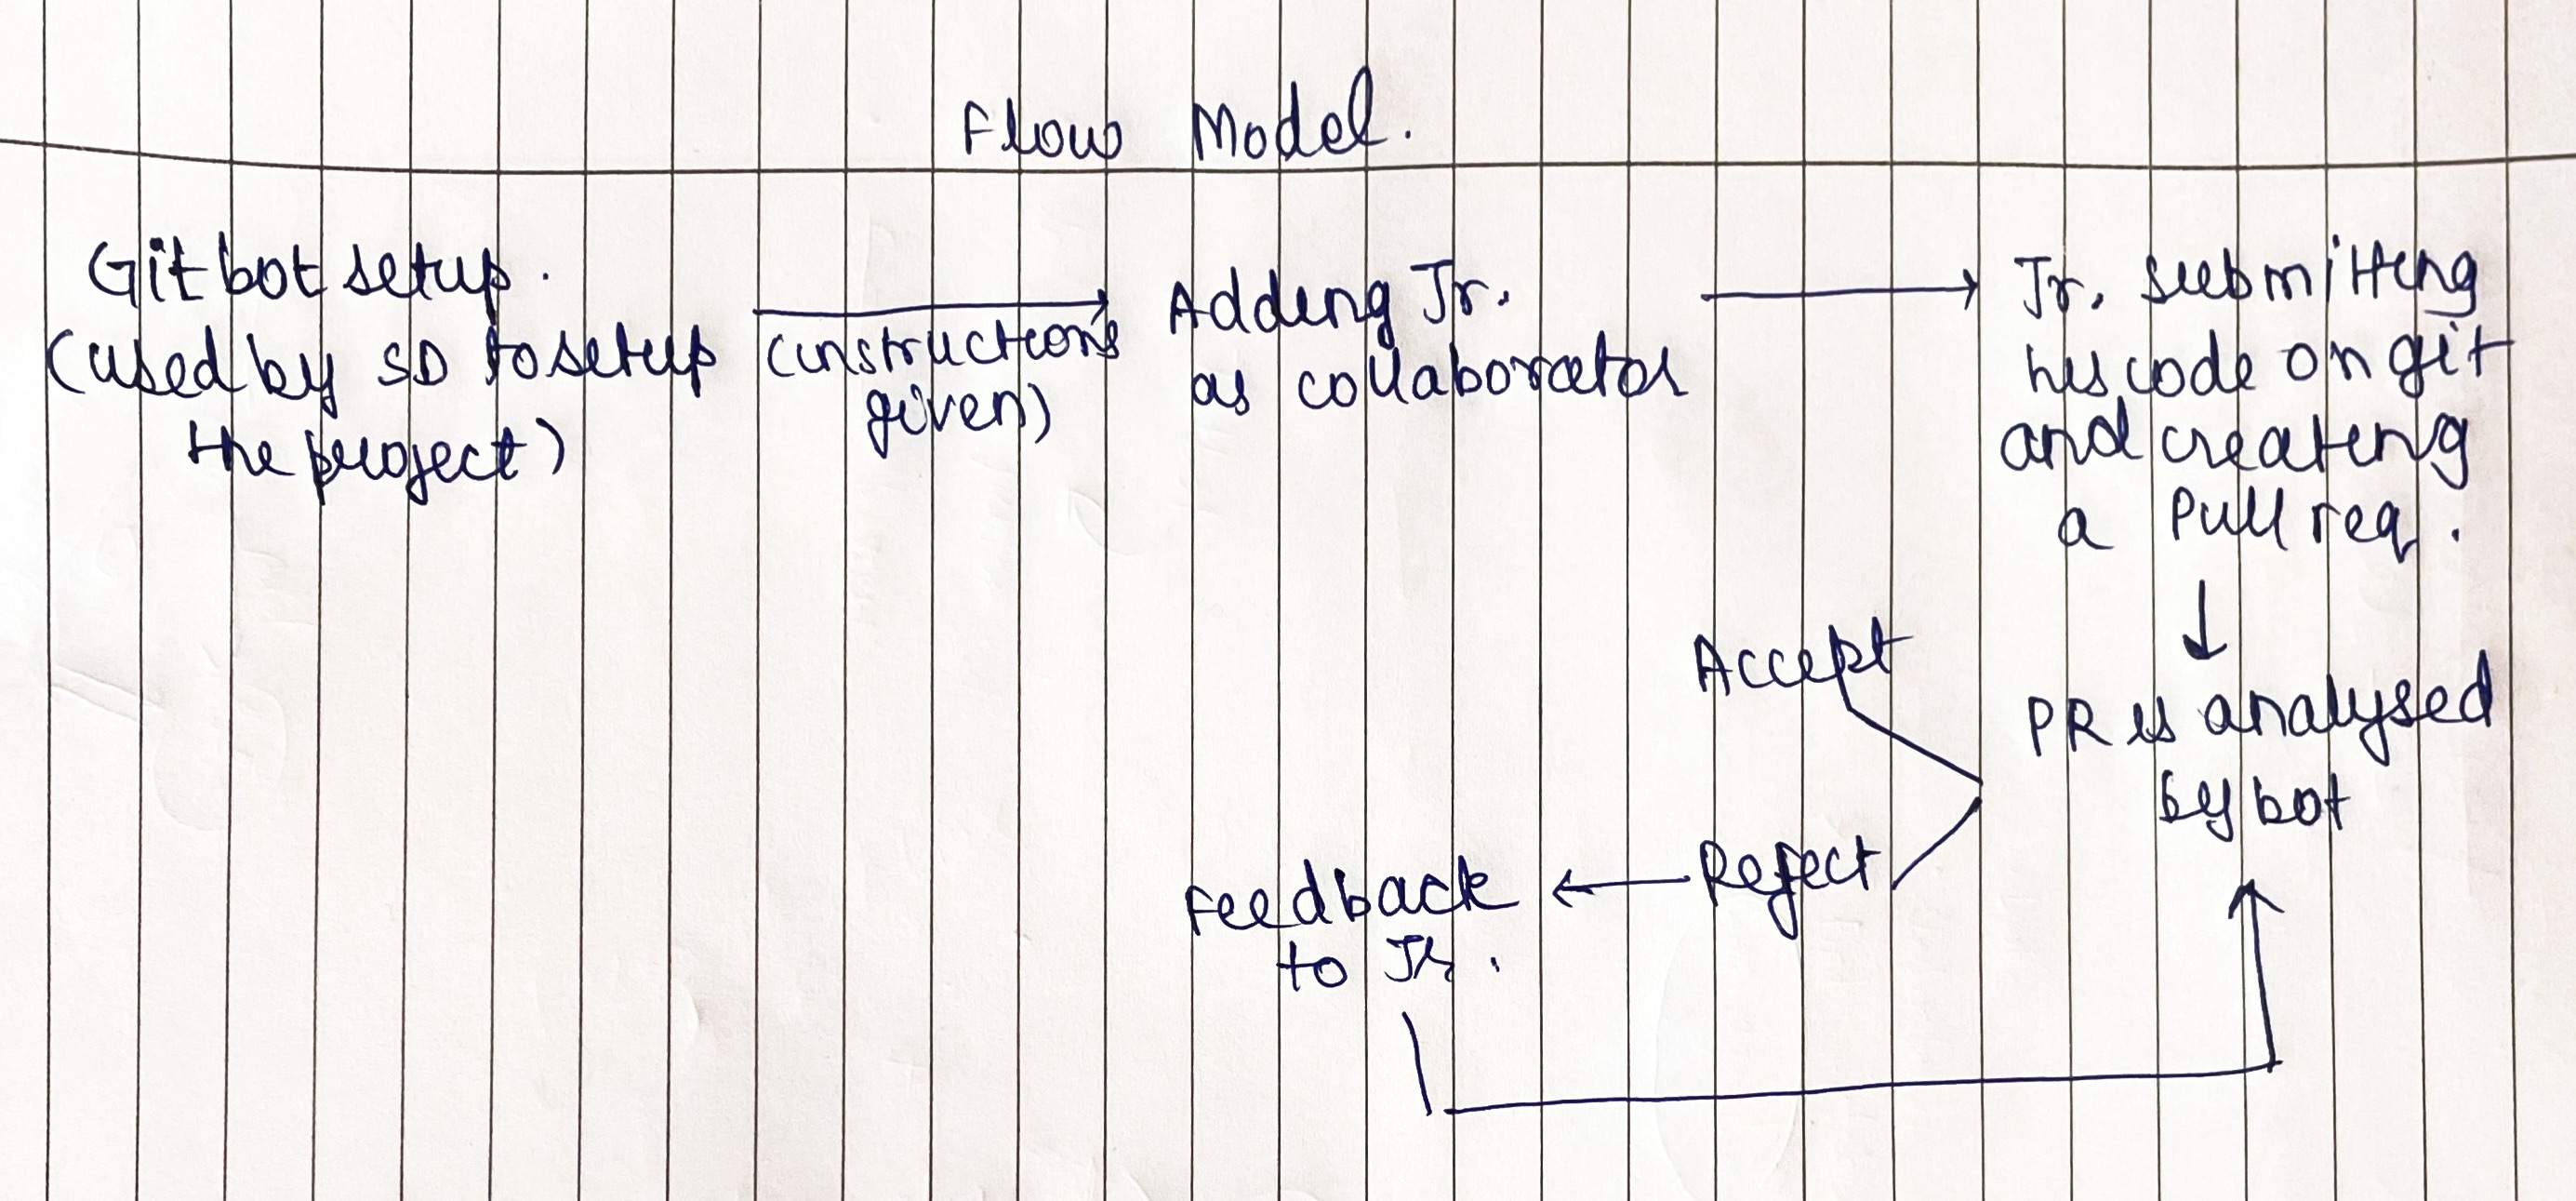 Flow Model.
Git bot setup.
(used by SD to setup
the project)
(instructions
given)
Adding Jr.
as collaborator
Jr. submitting
his code on git
and creating
a Pull req.
PR is analysed
by bot
Accept
Reject
Feedback
to Jr.